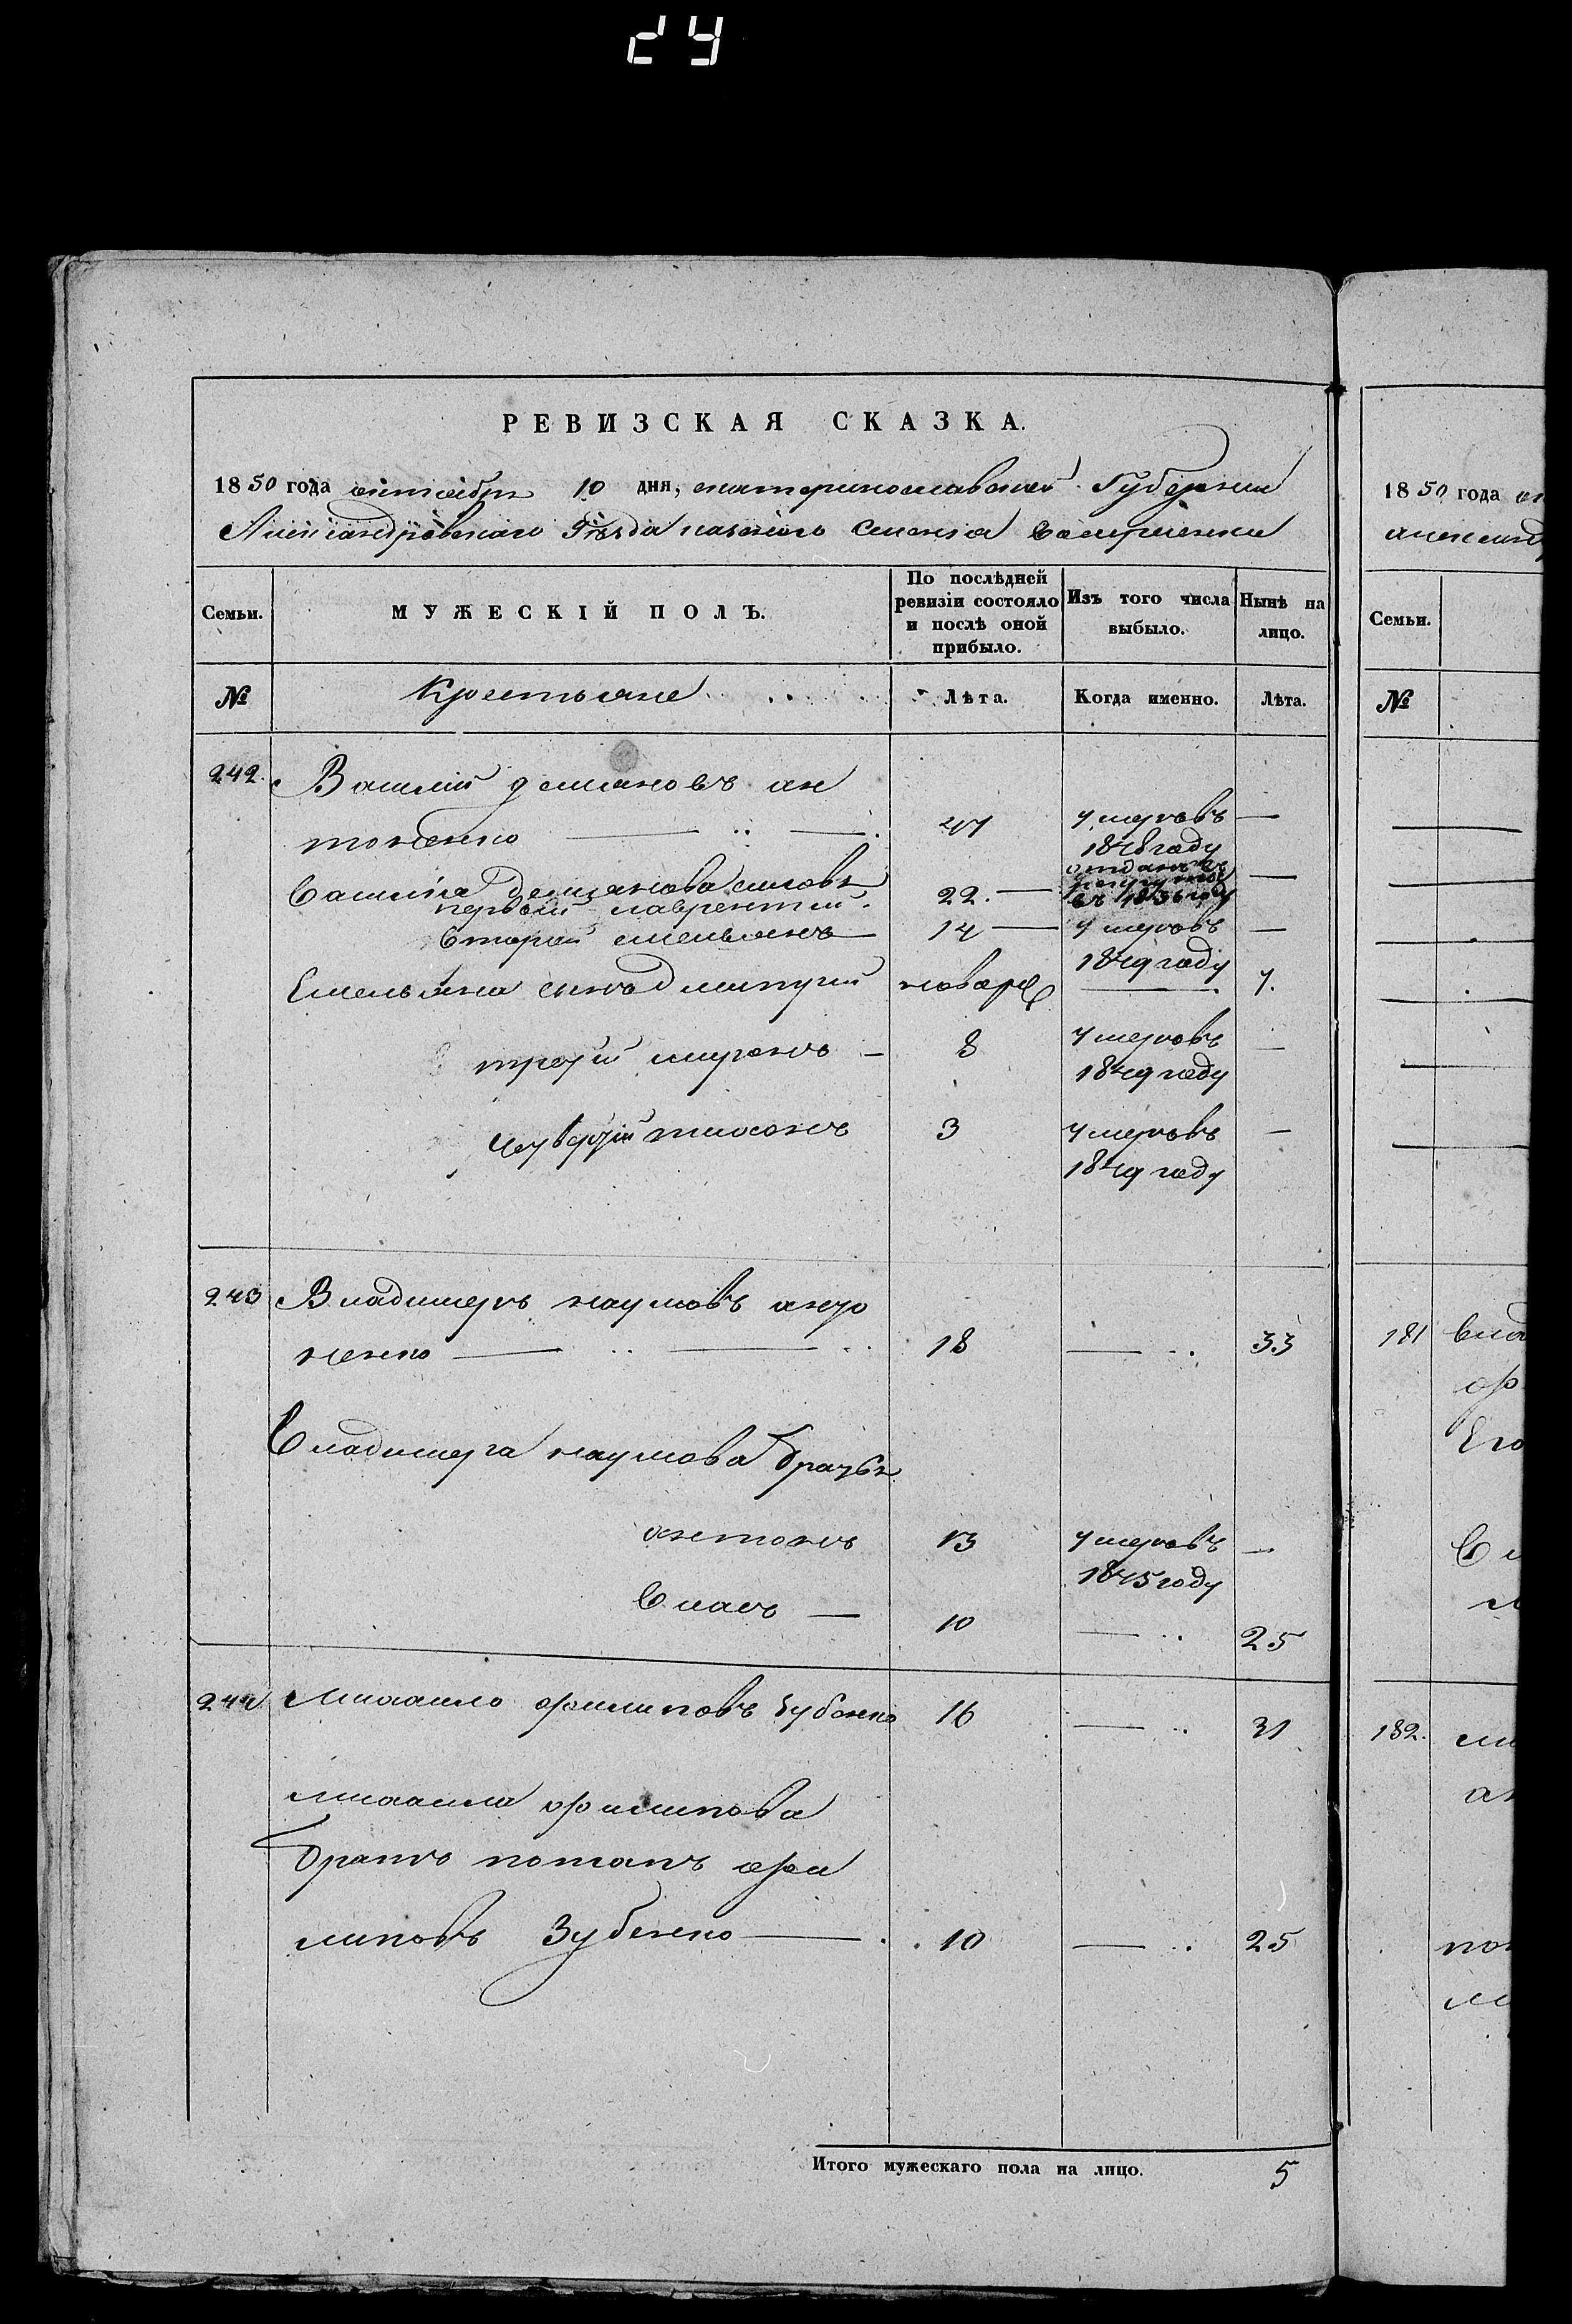 24
РЕВИЗСКАЯ СКАЗКА.
1850 года октября 10 дня, екатеринославской Губернии
Александровскаго Уѣзда казеннаго Селения
Семьи.
МУЖЕСКІЙ ПОЛЪ.
По послѣдней ревизіи состояло и послѣ оной прибыло.
Изъ того числа выбыло.
Нынѣ на лицо.
№
Крестьяне
Лѣта.
Когда именно.
Лѣта.
242. Василій демяновъ ан
тоненко — 47 умеръ въ —
1848 году
Василия Демянова сыновья
первый лаврентий 22. — отданъ въ рекруты въ 1836 году —
Вторый емельянъ 14 — умеръ въ —
1849 году
Емельяна сынъ дмитрий новорож — 7.
третий миронъ — 8 умеръ въ —
1849 году
четвертый тихонъ 3 умеръ въ —
1849 году
243 Владимеръ наумовъ анто
ненко — 18 — 33
Владимера наумова братья
антонъ 13 умеръ въ —
1845 году
Власъ — 10 — 25
244 Михаило филиповъ Зубенко 16 — 31
михаила филипова
братъ потапъ фи
липовъ Зубенко — 10 — 25
Итого мужескаго пола на лицо. 5
1850 года
Семьи.
№
181
Его
182.